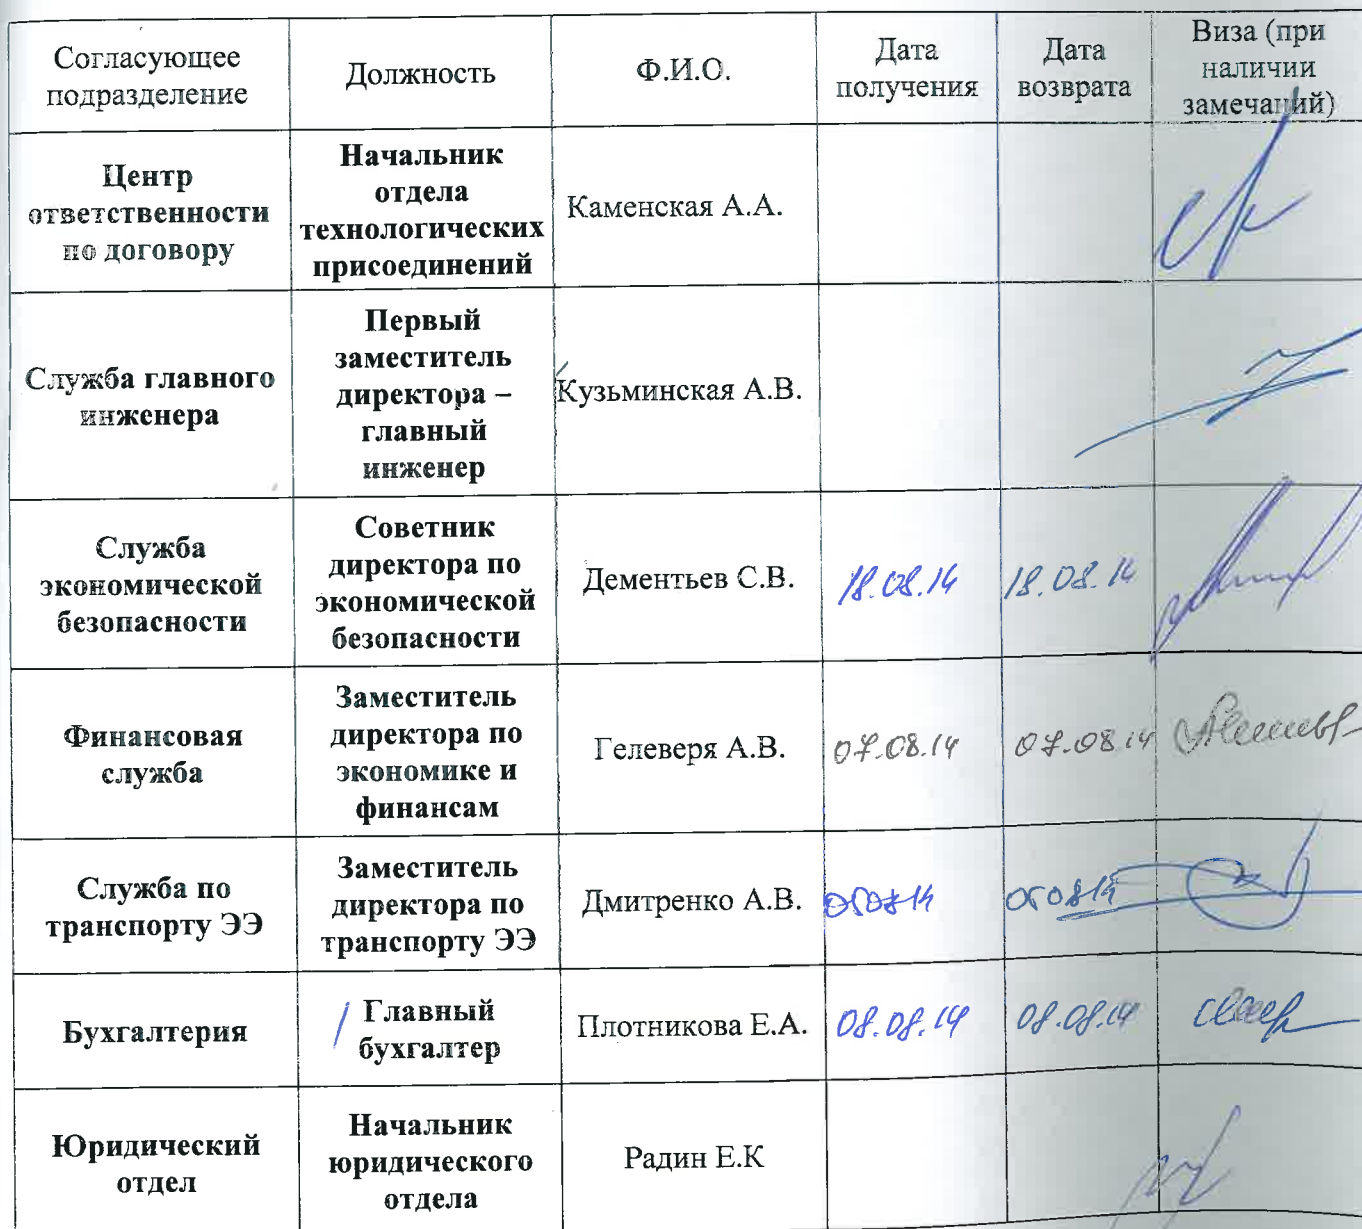 Согласующее
подразделение
Должность
Ф.И.О.
Дата
получения
Дата
возврата
Виза (при
наличии
замечаний)
Центр
ответственности
по договору
Начальник
отдела
технологических
присоединений
Каменская А.А.
Служба главного
инженера
Первый
заместитель
директора –
главный
инженер
Кузьминская А.В.
Служба
экономической
безопасности
Советник
директора по
экономической
безопасности
Дементьев С.В.
18.08.14
18.08.14
Финансовая
служба
Заместитель
директора по
экономике и
финансам
Гелеверя А.В.
07.08.14
07.08.14
Служба по
транспорту ЭЭ
Заместитель
директора по
транспорту ЭЭ
Дмитренко А.В.
050814
050814
Бухгалтерия
Главный
бухгалтер
Плотникова Е.А.
08.08.14
08.08.14
Юридический
отдел
Начальник
юридического
отдела
Радин Е.К